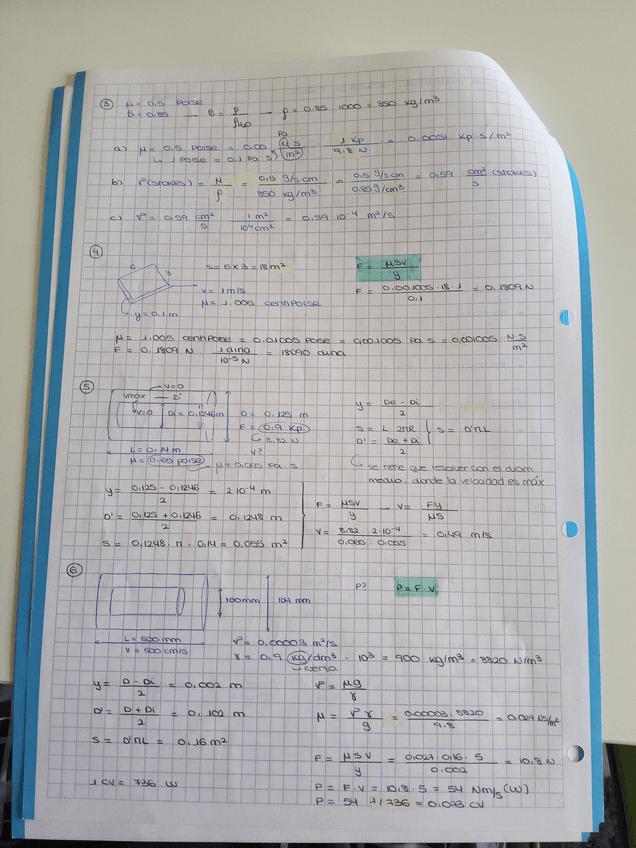 3 μ = 0.5 poise
B = 0.85 — B = ρ / ρH2O — ρ = 0.85 · 1000 = 850 kg/m³
a) μ = 0.5 poise = 0.05 N s / m² · 1 Kp / 9.8 N = 0.0051 Kp s/m²
↳ 1 poise = 0.1 Pa s
b) ν(stokes) = μ / ρ = 0.5 g/s cm / 850 kg/m³ = 0.5 g/s cm / 0.85 g/cm³ = 0.59 cm² / s (stokes)
c) ν = 0.59 cm² / s · 1 m² / 10⁴ cm² = 0.59 10⁻⁴ m²/s
4
6
3
S = 6 x 3 = 18 m²
F = μSV / y
V = 1 m/s
F = 0.001005 · 18 · 1 / 0.1 = 0.1809 N
μ = 1.005 centipoise
y = 0.1 m
μ = 1.005 centipoise = 0.01005 poise = 0.001005 Pa s = 0.001005 N S / m²
F = 0.1809 N · 1 dina / 10⁻⁵ N = 18090 dina
5
V=0
Vmax — D'
V=0
Di = 0.1246 m
D = 0.125 m
F = 0.9 Kp
↳ 8.82 N
V?
L = 0.14 m
μ = 0.65 poise
μ = 0.065 Pa s
y = De - Di / 2
S = L 2πR
S = D'πL
D' = De + Di / 2
se tiene que resolver con el diam
medio, donde la velocidad es máx
y = 0.125 - 0.1246 / 2 = 2·10⁻⁴ m
D' = 0.125 + 0.1246 / 2 = 0.1248 m
S = 0.1248 · π · 0.14 = 0.055 m²
F = μSV / y — V = Fy / μS
V = 8.82 · 2·10⁻⁴ / 0.065 · 0.055 = 0.49 m/s
6
100 mm
104 mm
P?
P = F · V
L = 500 mm
V = 500 cm/s
ν = 0.00003 m²/s
γ = 0.9 kg/dm³ · 10³ = 900 kg/m³ = 8820 N/m³
↳ fuerza
y = D - Di / 2 = 0.002 m
ν = μg / γ
D' = D + Di / 2 = 0.102 m
μ = ν γ / g = 0.00003 · 8820 / 9.8 = 0.027 NS/m²
S = D'πL = 0.16 m²
F = μSV / y = 0.027 · 0.16 · 5 / 0.002 = 10.8 N
1 CV = 736 W
P = F · V = 10.8 · 5 = 54 Nm/s (W)
P = 54 · 1/736 = 0.073 CV